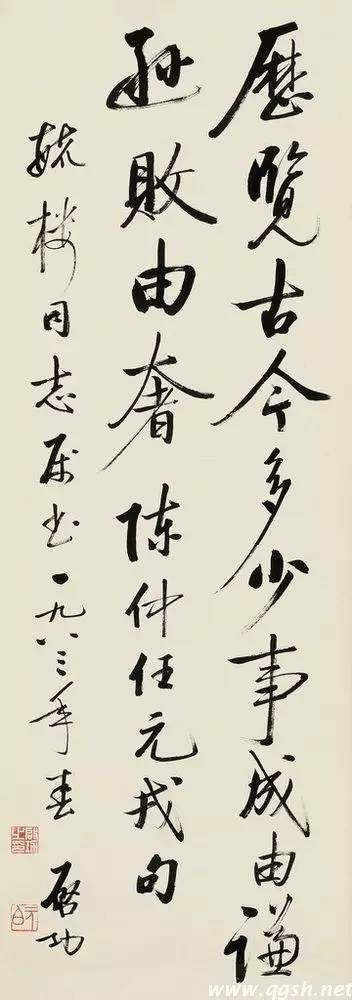 歷覽古今多少事成由谦
逊敗由奢 陈仲任元戎句
毓楼同志属书一九八三年春 启功
www.qgsh.net